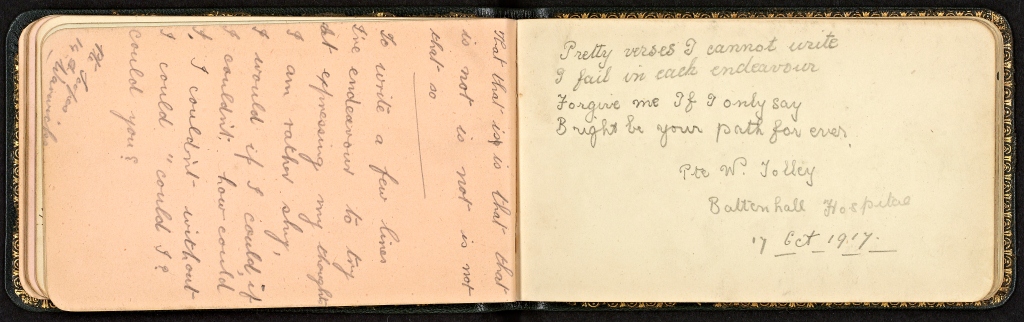 That that is, is that that
is not is not is not
that so
To write a few lines
I've endeavour to try
At expressing my thoughts
I am rather shy,
I would if I could, if
I couldn't. how could
I. I couldn't- without
I could " could I?
could you?
Pte
Pretty verses I cannot write
I fail in each endeavour
Forgive me If I only say
Bright be your path for ever.
Pte W. Tolley
Battenhall Hospital
17 Oct 1917.